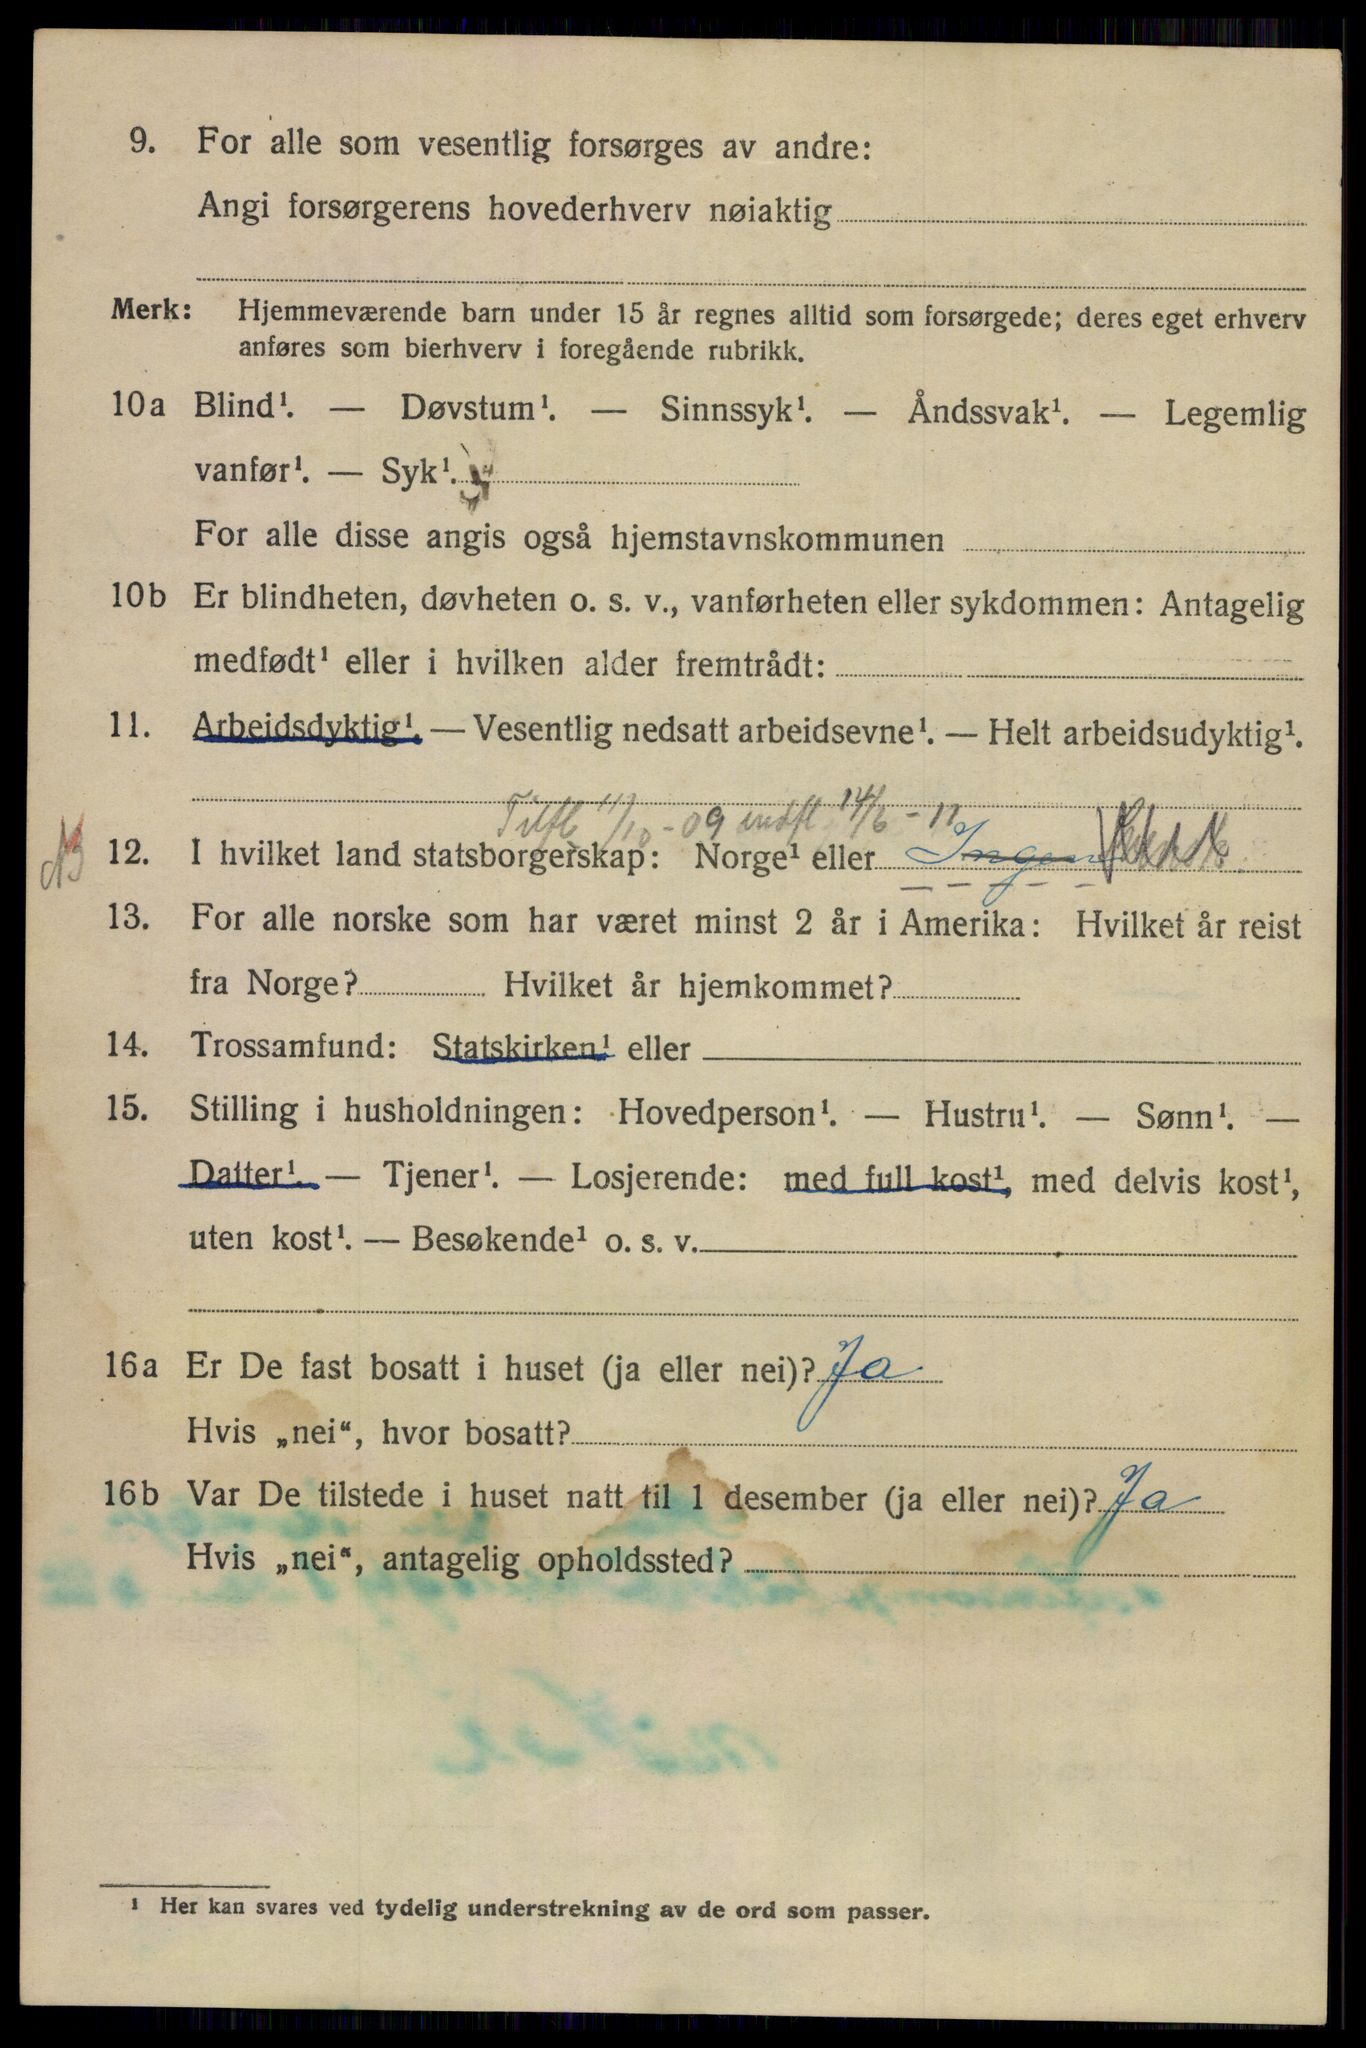 9. For alle som vesentlig forsørges av andre:
Angi forsørgerens hovederhverv nøiaktig
Merk: Hjemmeværende barn under 15 år regnes alltid som forsørgede; deres eget erhverv
anføres som bierhverv i foregående rubrikk.
10a Blind¹. — Døvstum¹. — Sinnssyk¹. — Åndssvak¹. — Legemlig
vanfør¹. — Syk¹.
For alle disse angis også hjemstavnskommunen
10b Er blindheten, døvheten o. s. v., vanførheten eller sykdommen: Antagelig
medfødt¹ eller i hvilken alder fremtrådt:
11. Arbeidsdyktig¹. — Vesentlig nedsatt arbeidsevne¹. — Helt arbeidsudyktig¹.
Tilfl 11/10-09 indfl 14/6-11
12. I hvilket land statsborgerskap: Norge¹ eller Ingen
13. For alle norske som har været minst 2 år i Amerika: Hvilket år reist
fra Norge? Hvilket år hjemkommet?
14. Trossamfund: Statskirken¹ eller
15. Stilling i husholdningen: Hovedperson¹. — Hustru¹. — Sønn¹. —
Datter¹. — Tjener¹. — Losjerende: med full kost¹, med delvis kost¹,
uten kost¹. — Besøkende¹ o. s. v.
16a Er De fast bosatt i huset (ja eller nei)? Ja
Hvis „nei“, hvor bosatt?
16b Var De tilstede i huset natt til 1 desember (ja eller nei)? Ja
Hvis „nei“, antagelig opholdssted?
¹ Her kan svares ved tydelig understrekning av de ord som passer.